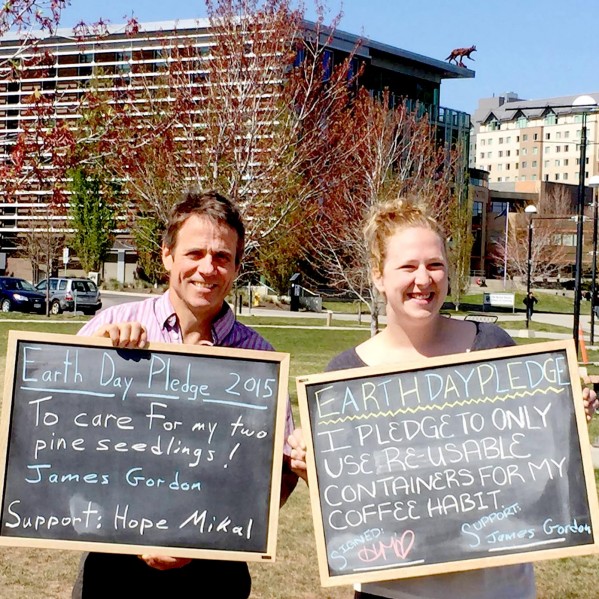 Earth Day Pledge 2015
To care for my two
pine seedlings!
James Gordon
Support: Hope Mikal
EARTH DAY PLEDGE
I PLEDGE TO ONLY
USE RE-USABLE
CONTAINERS FOR MY
COFFEE HABIT
SIGNED:
HM
SUPPORT:
James Gordon